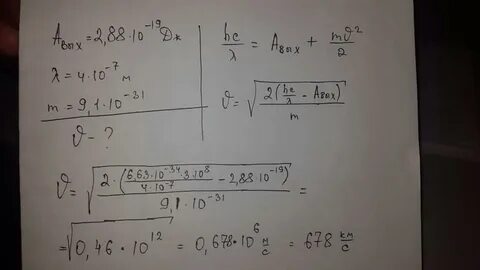 Aвых = 2,88·10⁻¹⁹ Дж
λ = 4·10⁻⁷ м
m = 9,1·10⁻³¹
ϑ – ?
hc/λ = Aвых + mϑ²/2
ϑ = √(2(hc/λ − Aвых)/m)
ϑ = √(2·(6,63·10⁻³⁴·3·10⁸/4·10⁻⁷ − 2,88·10⁻¹⁹)/9,1·10⁻³¹) =
= √(0,46·10¹²) = 0,678·10⁶ м/с = 678 км/с